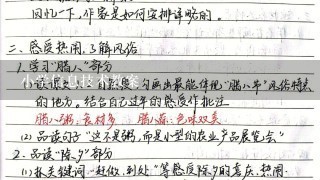 回忆一下,作家是如何安排详略的。
二、感受热闹,了解风俗
1. 学习“腊八”部分
的地方。结合自己过年的感受作批注
腊八粥:食材多 腊八蒜:色味双美
(2) 品读句子“这不是粥,而是小型的农业产品展览会”
2. 品读“除夕”部分
(1) 抓关键词“赶做、到处”等感受除夕的喜庆、热闹